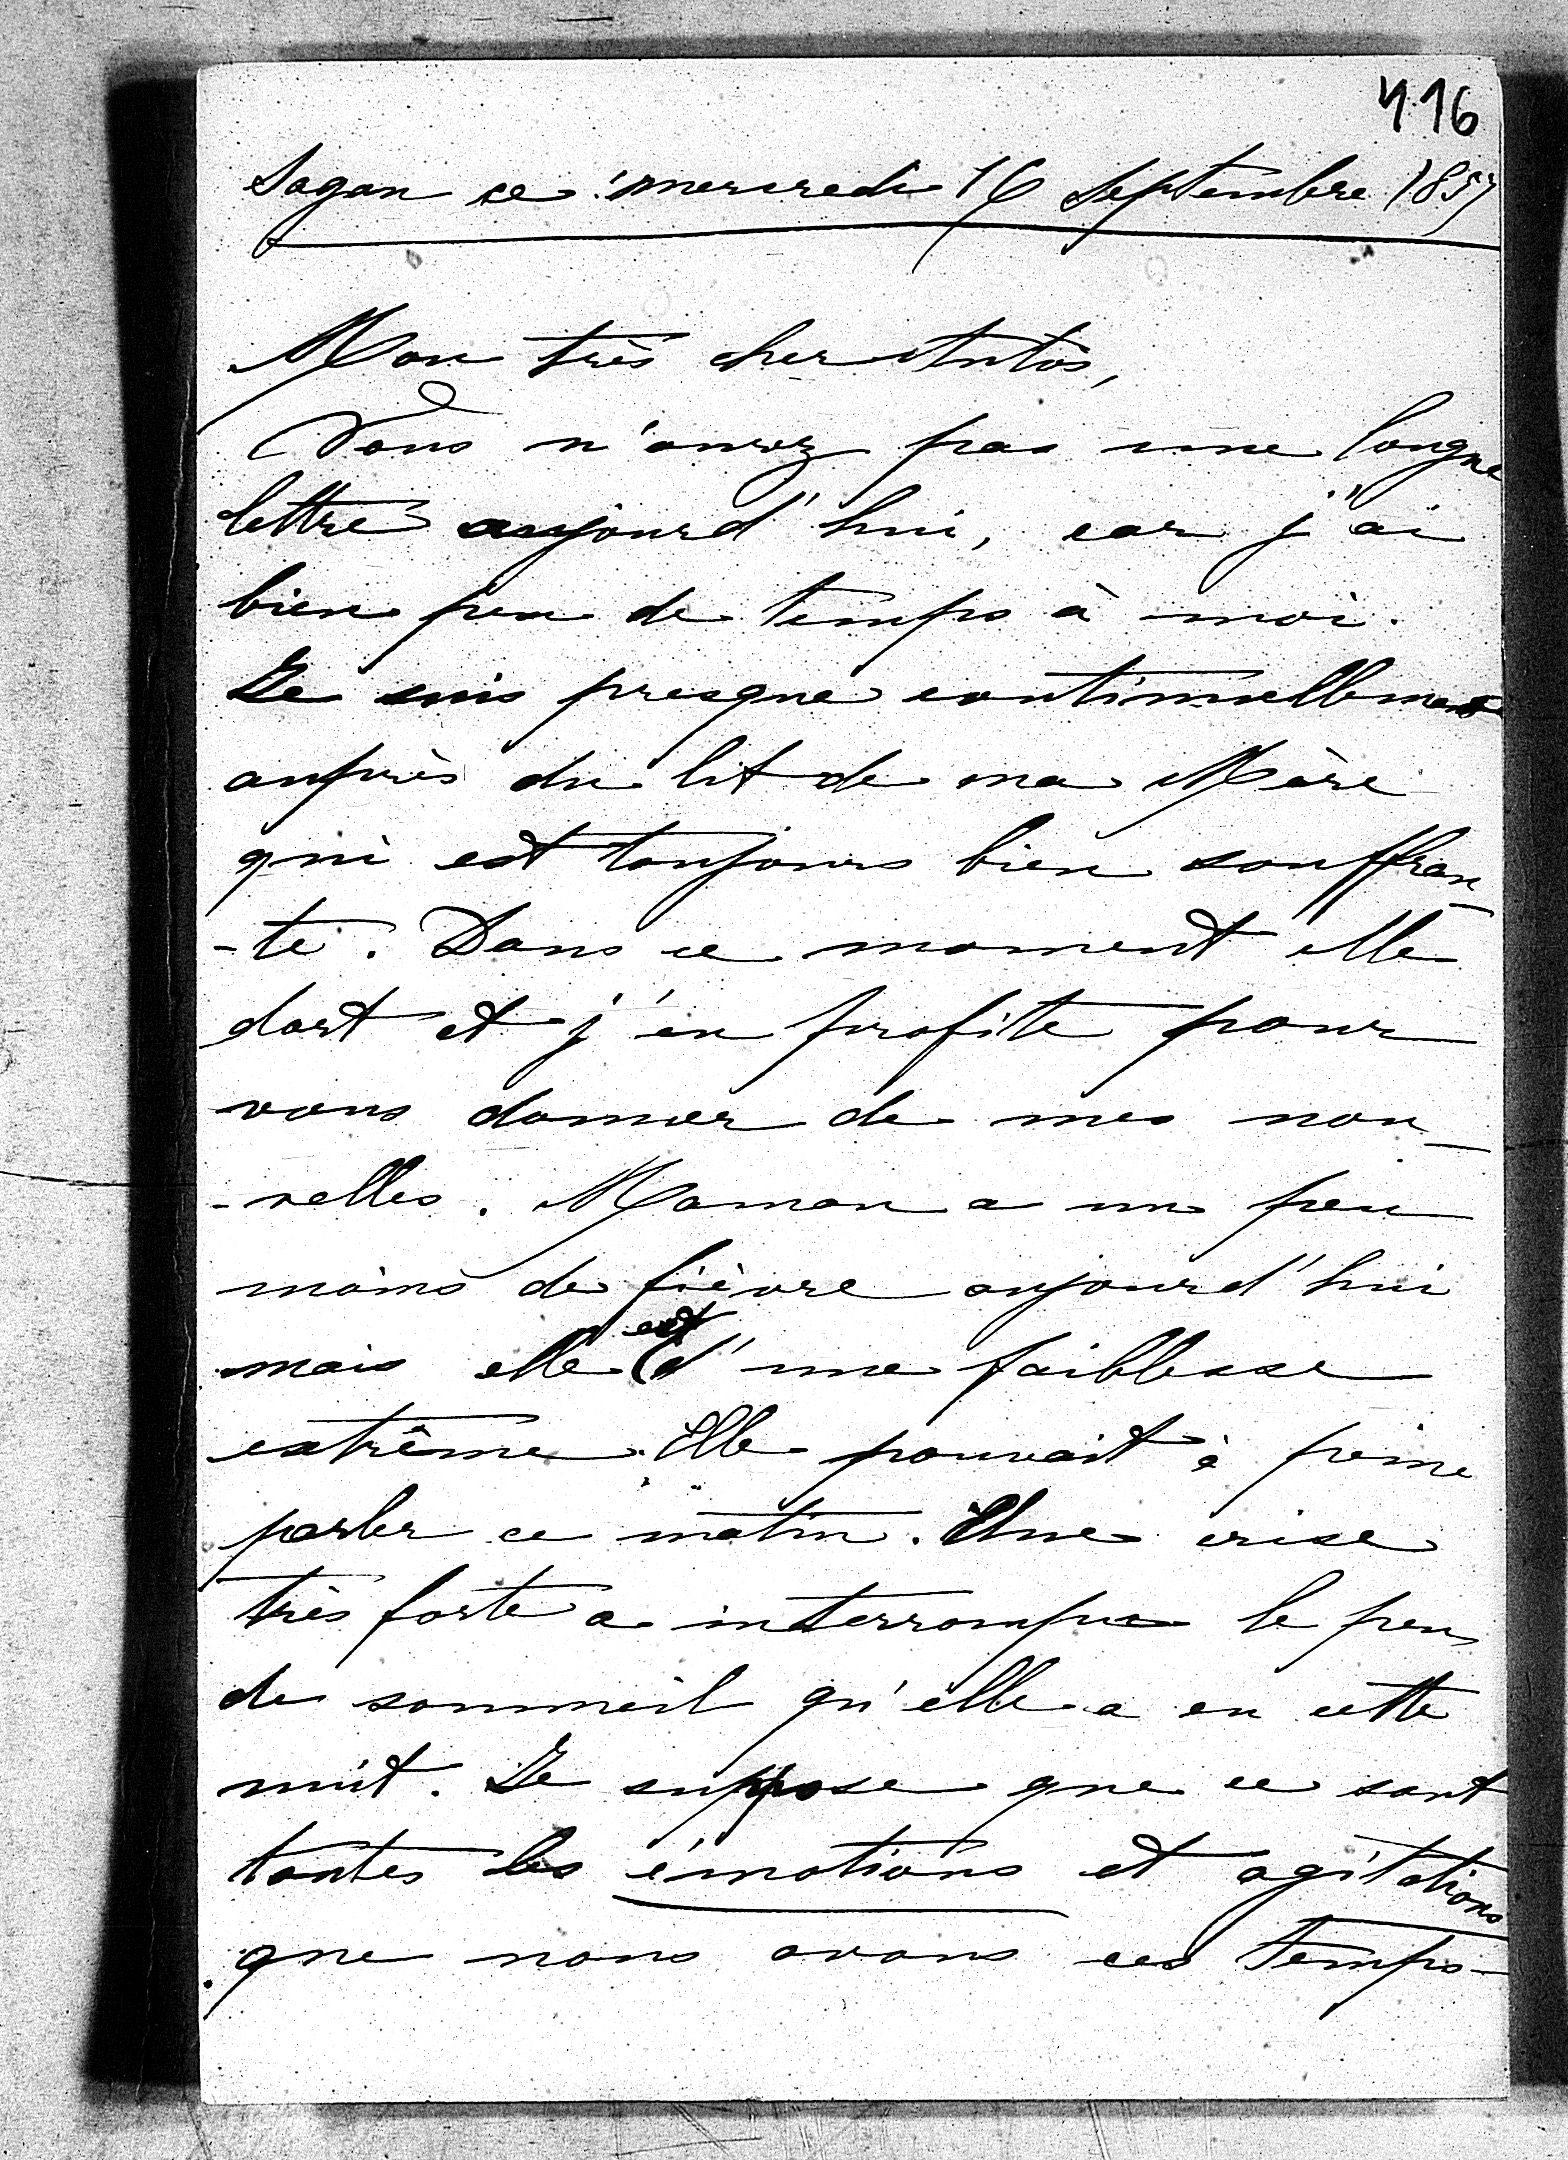 416
Sagan ce mercredi 16 Septembre 1857
Mon très cher Antos,
Vous n'aurez pas une longue
lettre aujourd'hui, car j'ai
bien peu de temps à moi.
Je suis presque continuellement
auprès du lit de ma Mère
qui est toujours bien souffran-
-te. Dans ce moment elle
dort et j'en profite pour
vous donner de mes nou-
-velles. Maman a un peu
moins de fièvre aujourd'hui
mais elle est d'une faiblesse
extrême. Elle pouvait à peine
parler ce matin. Une crise
très forte a interrompu le peu
de sommeil qu'elle a eu cette
nuit. Je suppose que ce sont
toutes les émotions et agitations
que nous avons ces temps-